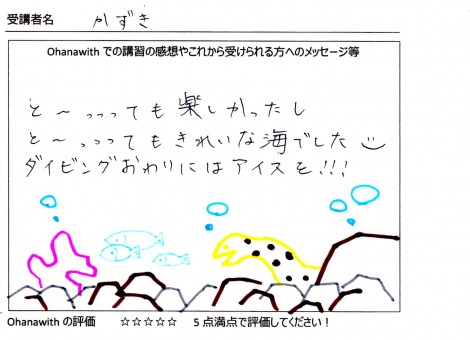 受講者名 かずき
Ohanawith での講習の感想やこれから受けられる方へのメッセージ等
と〜っっっても楽しかったし
と〜っっってもきれいな海でした
ダイビングおわりにはアイスを!!!
Ohanawith の評価 ☆☆☆☆☆ 5点満点で評価してください！